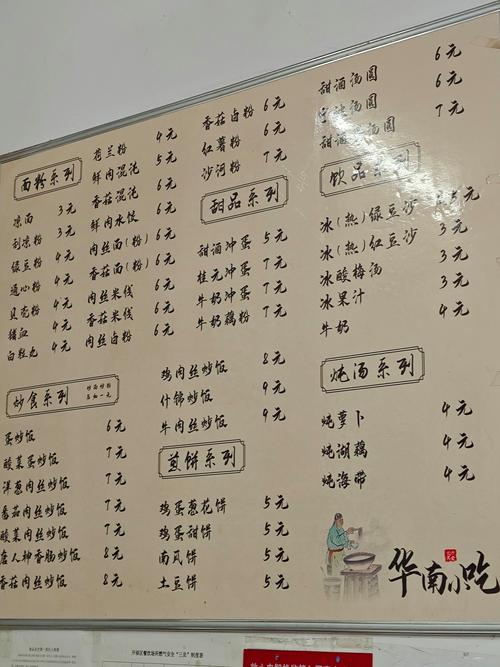 面粉系列
凉面 3元
刮凉粉 3元
绿豆粉 4元
通心粉 4元
贝壳粉 4元
猪血 4元
白粒丸 4元
花兰粉 4元
鲜肉混沌 5元
香菇混沌 6元
鲜肉水饺 6元
肉丝面(粉) 6元
香菇面(粉) 6元
肉丝米线 6元
香菇米线 6元
肉丝卤粉 6元
香菇卤粉 6元
红薯粉 6元
沙河粉 7元
甜品系列
甜酒冲蛋 5元
桂元冲蛋 7元
牛奶冲蛋 7元
牛奶藕粉 7元
甜酒汤圆 6元
汤圆 6元
甜酒 汤圆 7元
饮品系列
冰(热)绿豆沙 5元
冰(热)红豆沙 3元
冰酸梅汤 3元
冰果汁 3元
牛奶 4元
炒食系列
炒面炒粉
另加一元
蛋炒饭 6元
酸菜蛋炒饭 7元
洋葱肉丝炒饭 7元
番茄肉丝炒饭 7元
酸菜肉丝炒饭 7元
唐人神香肠炒饭 8元
香菇肉丝炒饭 8元
鸡肉丝炒饭 8元
什锦炒饭 9元
牛肉丝炒饭 9元
煎饼系列
鸡蛋葱花饼 5元
鸡蛋甜饼 5元
南风饼 5元
土豆饼 5元
炖汤系列
炖萝卜 4元
炖湖藕 4元
炖海带 4元
华南小吃